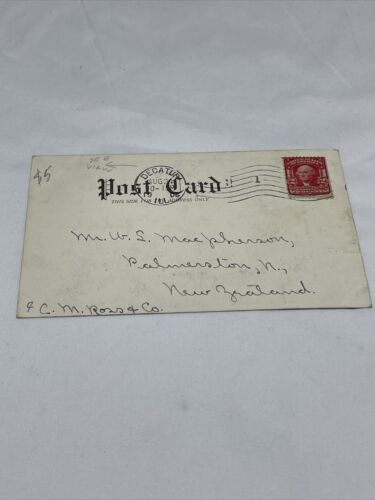 $5
VIEW
DECATUR
AUG
ILL.
1
Post Card
THIS SIDE FOR ADDRESS ONLY
Mr. W. S. Macpherson,
Palmerston, N.,
New Zealand.
C. M. Ross & Co.